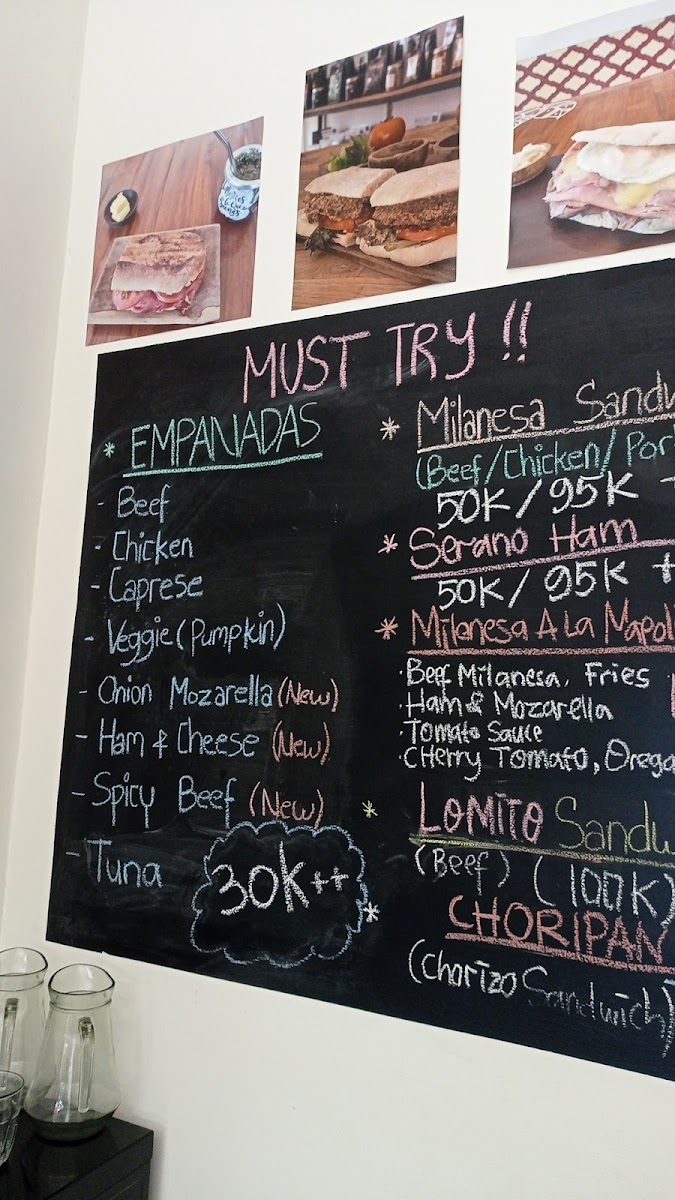 MUST TRY !!
* EMPANADAS
- Beef
- Chicken
- Caprese
- Veggie (Pumpkin)
- Onion Mozarella (New)
- Ham & Cheese (New)
- Spicy Beef (New)
- Tuna
30K++
* Milanesa Sandw
(Beef/Chicken/Pork
50K/95K
* Serano Ham
50K/95K +
* Milanesa A La Napoli
· Beef Milanesa, Fries
· Ham & Mozarella
· Tomato Sauce
· CHerry Tomato, Orega
* LOMITO Sandw
(Beef) (100K)
* CHORIPAN
(Chorizo Sandwich)